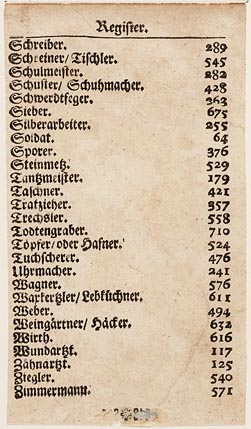 Register.
Schreiber. 289
Schreiner/Tischler. 545
Schulmeister. 282
Schuster/ Schuhmacher. 428
Schwerdtfeger. 363
Sieber. 675
Silberarbeiter. 255
Soldat. 64
Sporer. 376
Steinmetz. 529
Tantzmeister. 179
Taschner. 421
Tratzieher. 357
Trechsler. 558
Todtengraber. 710
Töpfer/oder Hafner. 524
Tuchscherer. 476
Uhrmacher. 241
Wagner. 576
Waxkertzler/ Lebküchner. 611
Weber. 494
Weingärtner/ Häcker. 632
Wirth. 616
Wundartzt. 117
Zahnartzt. 125
Ziegler. 540
Zimmermann. 571